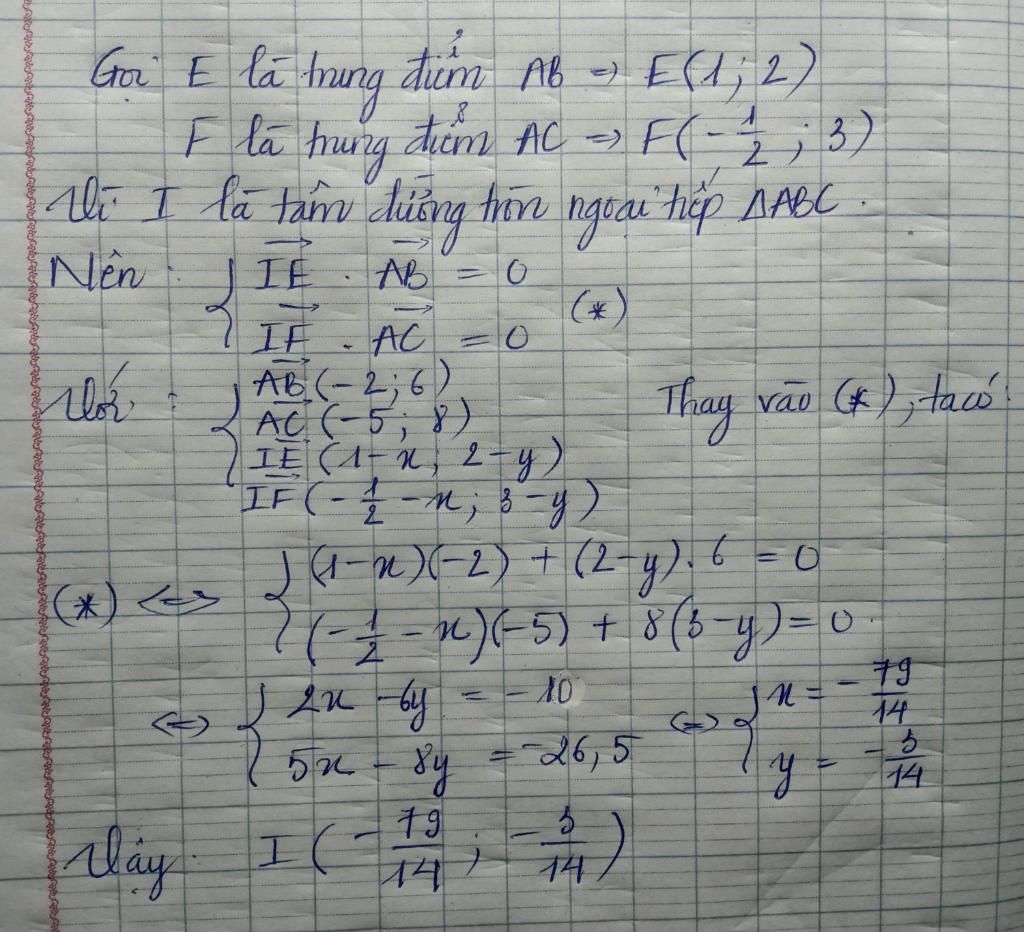 Gọi E là trung điểm AB => E(1; 2)
F là trung điểm AC => F(-1/2; 3)
Vì I là tâm đường tròn ngoại tiếp ΔABC.
Nên: { IE→ . AB→ = 0
IF→ . AC→ = 0 (*)
Với: { AB→(-2; 6)
AC→(-5; 8) Thay vào (*), ta có:
IE→(1-x; 2-y)
IF→(-1/2-x; 3-y)
(*) <=> { (1-x)(-2) + (2-y).6 = 0
(-1/2-x)(-5) + 8(3-y) = 0.
<=> { 2x - 6y = -10 <=> { x = -79/14
5x - 8y = -26,5 y = -3/14
Vậy: I(-79/14; -3/14)